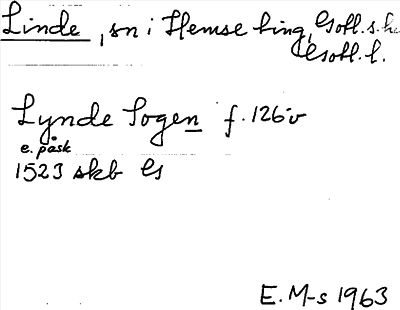 Linde, sn i Hemse ting, Gotl. s. h
Gotl. l.
Lynde Sogen f. 126 v
e. påsk
1523 skb G
E. M-s 1963